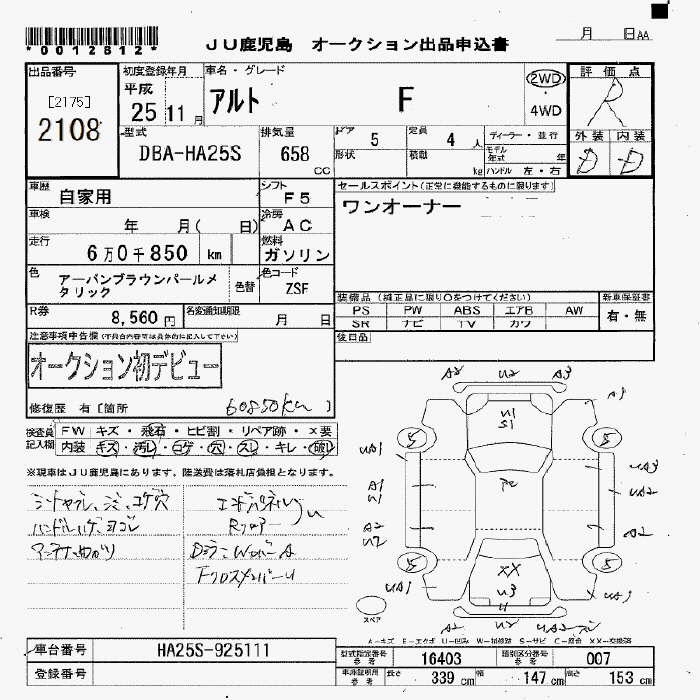 *0012812*
JU鹿児島 オークション出品申込書
月 日AA
出品番号
[2175]
2108
初度登録年月
平成
25 11月
車名・グレード
アルト F
2WD
・
4WD
評価点
R
外装 内装
D D
型式
DBA-HA25S
排気量
658
CC
ドア
5
定員
4 人
形状
積載
kg
ディーラー・並行
モデル
年式 年
ハンドル 左・右
車歴
自家用
シフト
F5
車検
年 月( 日)
冷房
AC
走行
6万0千850 km
燃料
ガソリン
色
アーバンブラウンパールメ
タリック
色替
色コード
ZSF
R券
8,560円
名変通知期限
月 日
セールスポイント(正常に機能するものに限ります)
ワンオーナー
装備品(純正品に限り○をつけてください)
PS PW ABS エアB AW
SR ナビ TV カワ
新車保証書
有・無
後日品
注意事項申告欄(不具合内容等は具体的に記入して下さい)
オークション初デビュー
修復歴 有[箇所 60850km ]
検査員
記入欄
FW キズ・飛石・ヒビ割・リペア跡・X要
内装 キズ・汚レ・コゲ・穴・スレ・キレ・破レ
※現車はJU鹿児島にあります。陸送費は落札店負担となります。
シートヤブレ、シミ、コゲ穴
ハンドルハゲ、ヨゴレ
アンテナまがり
エンドパネルU
Rフロアー
FクロスメンバーU
A2 U2 A3
A1
U1
S1
5 5
UA1
A1
U1
A2
U2
UA3
UA2
A2
5 5
XX
U3
U
UA1
UA1
A2 U2 UA2
スペア
A－キズ E－エクボ U－凹み W－補修跡 S－サビ C－腐食 XX－交換済
車台番号
HA25S-925111
登録番号
型式指定番号
参考
16403
類別区分番号
参考
007
車庫証明用
参考
長さ 339cm 幅 147cm 高さ 153cm